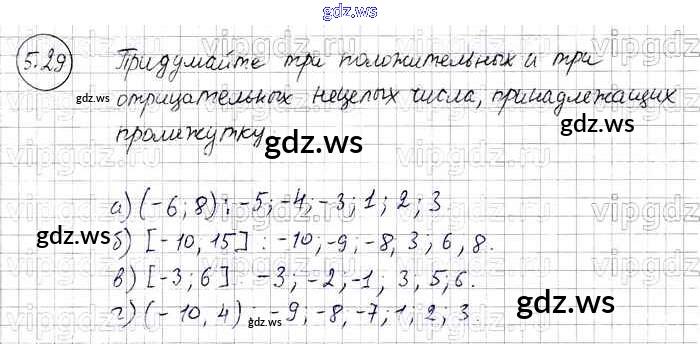 gdz.ws
5.29 Придумайте три положительных и три
gdz.ws отрицательных нецелых числа, принадлежащих
промежутку gdz.ws
gdz.ws
а) (-6; 8) : -5; -4; -3; 1; 2; 3.
gdz.ws б) [-10, 15] : -10; -9; -8, 3; 6, 8. gdz.ws
в) [-3; 6] : -3, -2; -1, 3, 5; 6.
г) (-10, 4) : -9; -8, -7; 1; 2; 3. gdz.ws
gdz.ws